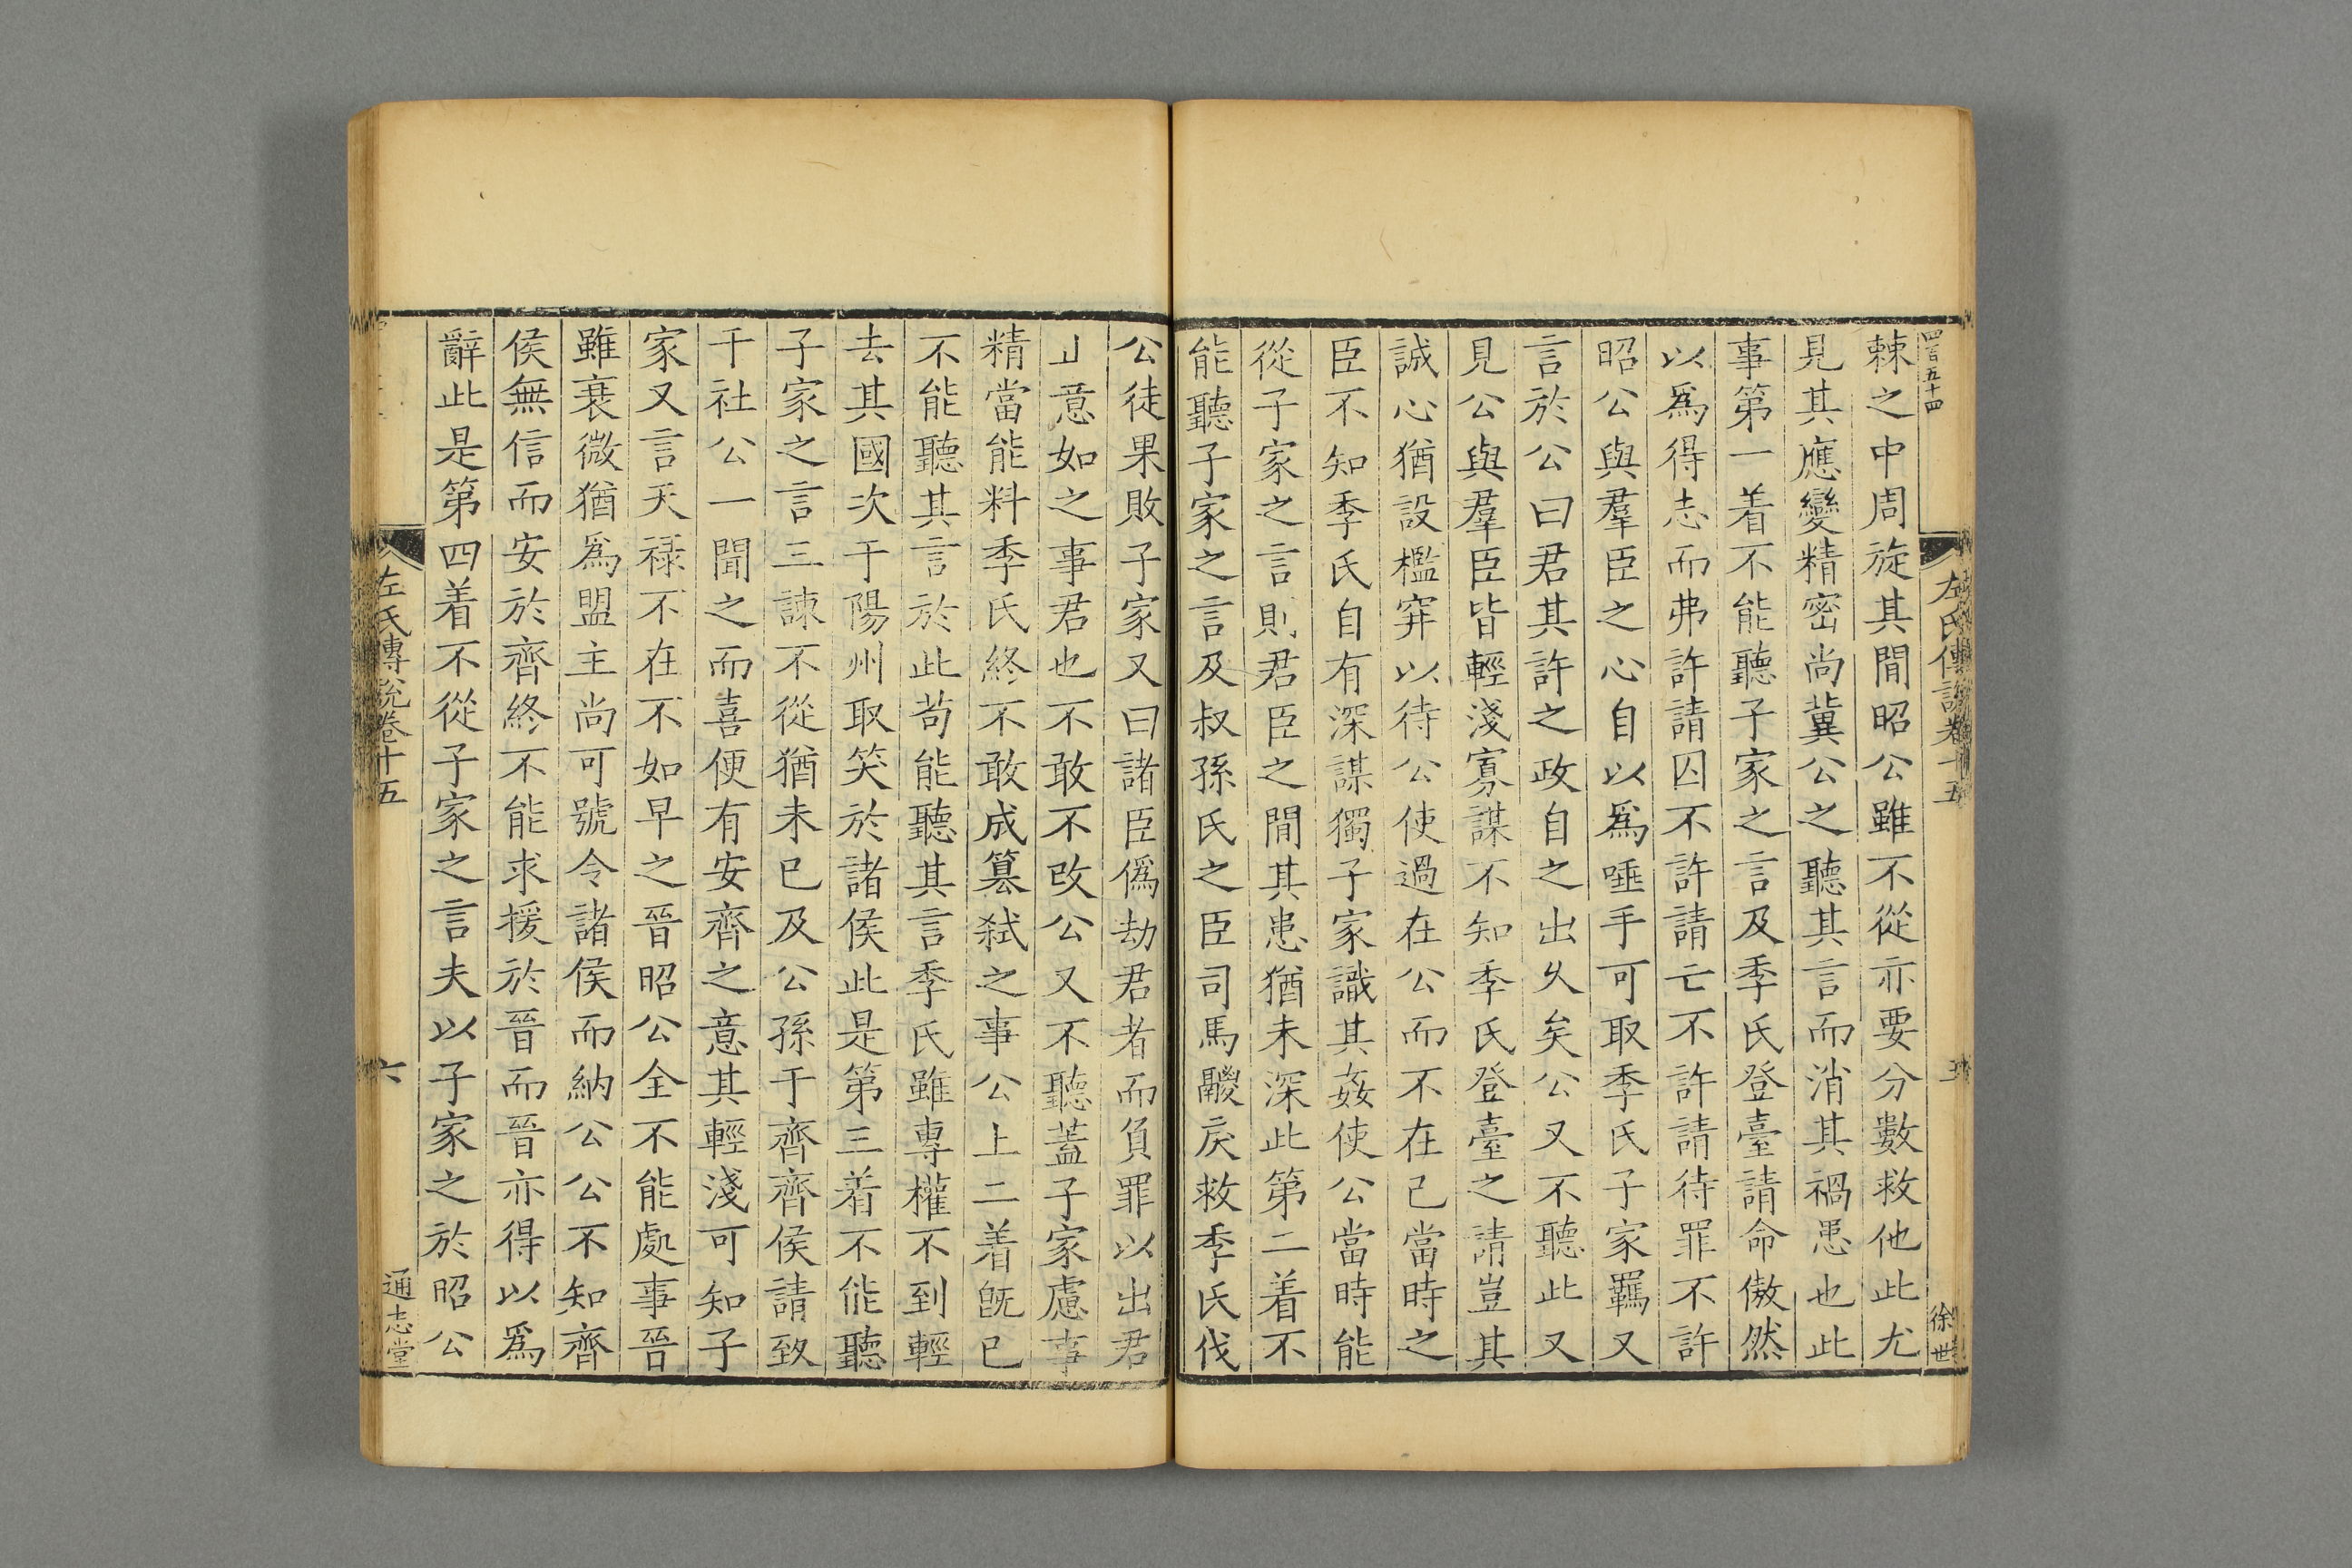 四百五十四
左氏傳說卷十五
五
徐世
棘之中周旋其間昭公雖不從亦要分數救他此尤
見其應變精密尚冀公之聽其言而消其禍患也此
事第一着不能聽子家之言及季氏登臺請命傲然
以爲得志而弗許請囚不許請亡不許請待罪不許
昭公與羣臣之心自以爲唾手可取季氏子家羈又
言於公曰君其許之政自之出久矣公又不聽此又
見公與羣臣皆輕淺寡謀不知季氏登臺之請豈其
誠心猶設檻穽以待公使過在公而不在己當時之
臣不知季氏自有深謀獨子家識其姦使公當時能
從子家之言則君臣之間其患猶未深此第二着不
能聽子家之言及叔孫氏之臣司馬鬷戾救季氏伐
公徒果敗子家又曰諸臣僞劫君者而負罪以出君
止意如之事君也不敢不改公又不聽蓋子家慮事
精當能料季氏終不敢成簒弑之事公上二着旣已
不能聽其言於此茍能聽其言季氏雖專權不到輕
去其國次于陽州取笑於諸侯此是第三着不能聽
子家之言三諫不從猶未已及公孫于齊齊侯請致
千社公一聞之而喜便有安齊之意其輕淺可知子
家又言天祿不在不如早之晉昭公全不能處事晉
雖衰微猶爲盟主尚可號令諸侯而納公公不知齊
侯無信而安於齊終不能求援於晉而晉亦得以爲
辭此是第四着不從子家之言夫以子家之於昭公
左氏傳說卷十五
六
通志堂